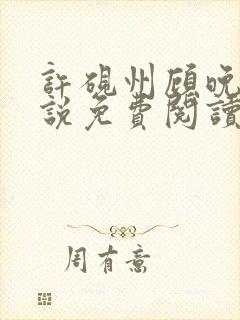 許硯州顧晚
說免費閱讀
周有意